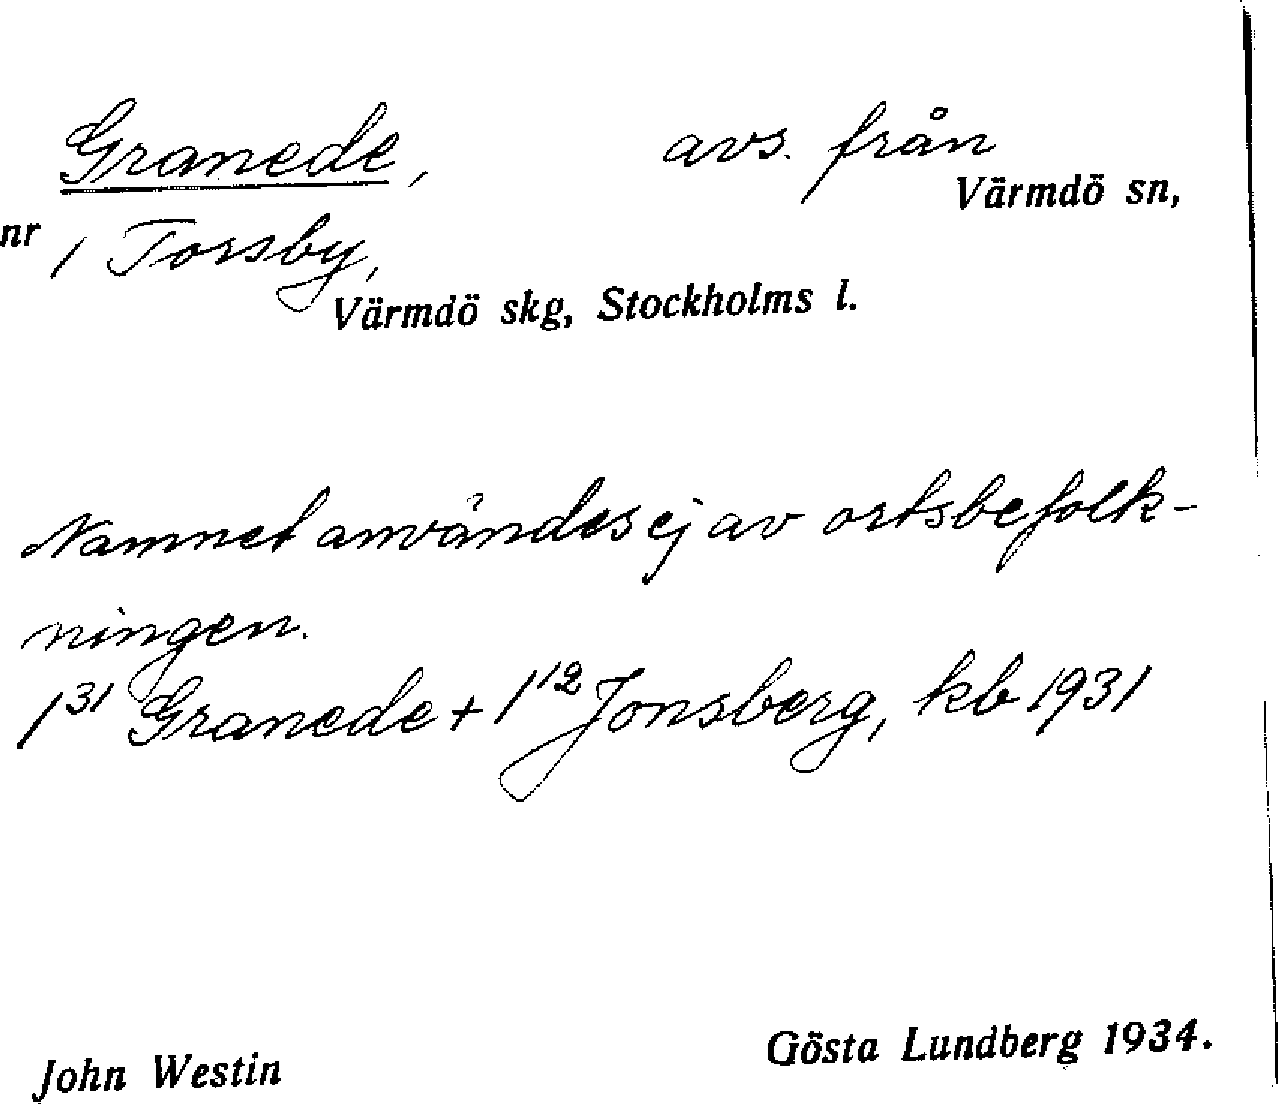 Granede, avs. från
Värmdö sn,
nr 1 Torsby,
Värmdö skg, Stockholms l.
Namnet användes ej av ortsbefolk-
ningen.
1³¹ Granede + 1¹² Jonsberg, kb 1931
John Westin Gösta Lundberg 1934.